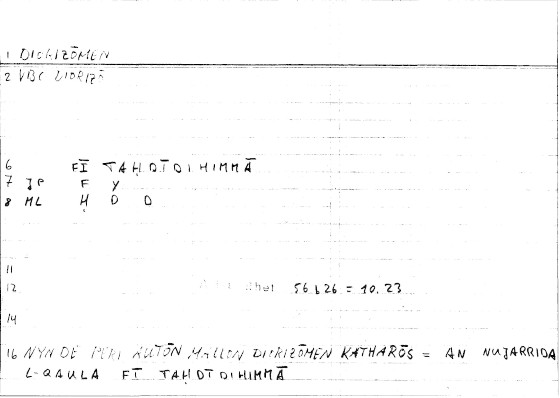 1 DIORIZŌMEN
2 VBC DIORIZŌ
6 FĪ TAḤDĪDIHIMMĀ
7 JP F Y
8 ML Ḥ D D
11
12 56b26 = 10.23
14
16 NYN DE PERI AUTŌN MALLON DIORIZŌMEN KATHARŌS = AN NUJARRIDA
L-QAULA FĪ TAḤDĪDIHIMMĀ